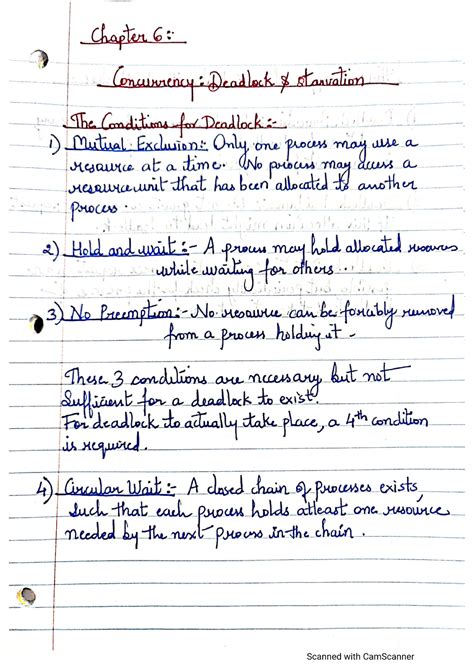 Chapter 6:-
Concurrency: Deadlock & Starvation
The Conditions for Deadlock:-
1) Mutual Exclusion:- Only one process may use a
resource at a time. No process may access a
resource unit that has been allocated to another
process.
2) Hold and wait:- A process may hold allocated resources
while waiting for others.
3) No Preemption:- No resource can be forcibly removed
from a process holding it.
These 3 conditions are necessary but not
Sufficient for a deadlock to exist.
For deadlock to actually take place, a 4th condition
is required.
4) Circular Wait:- A closed chain of processes exists,
such that each process holds atleast one resource
needed by the next process in the chain.
Scanned with CamScanner